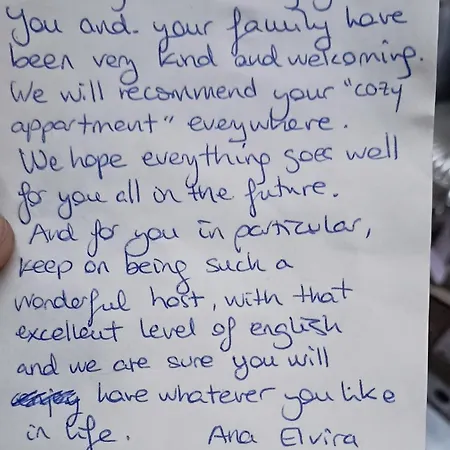 You and your family have
been very kind and welcoming.
We will recommend your "cozy
appartment" eveywhere.
We hope everything goes well
for you all in the future.
And for you in particular,
keep on being such a
wonderful host, with that
excellent level of english
and we are sure you will
have whatever you like
in life. Ana Elvira